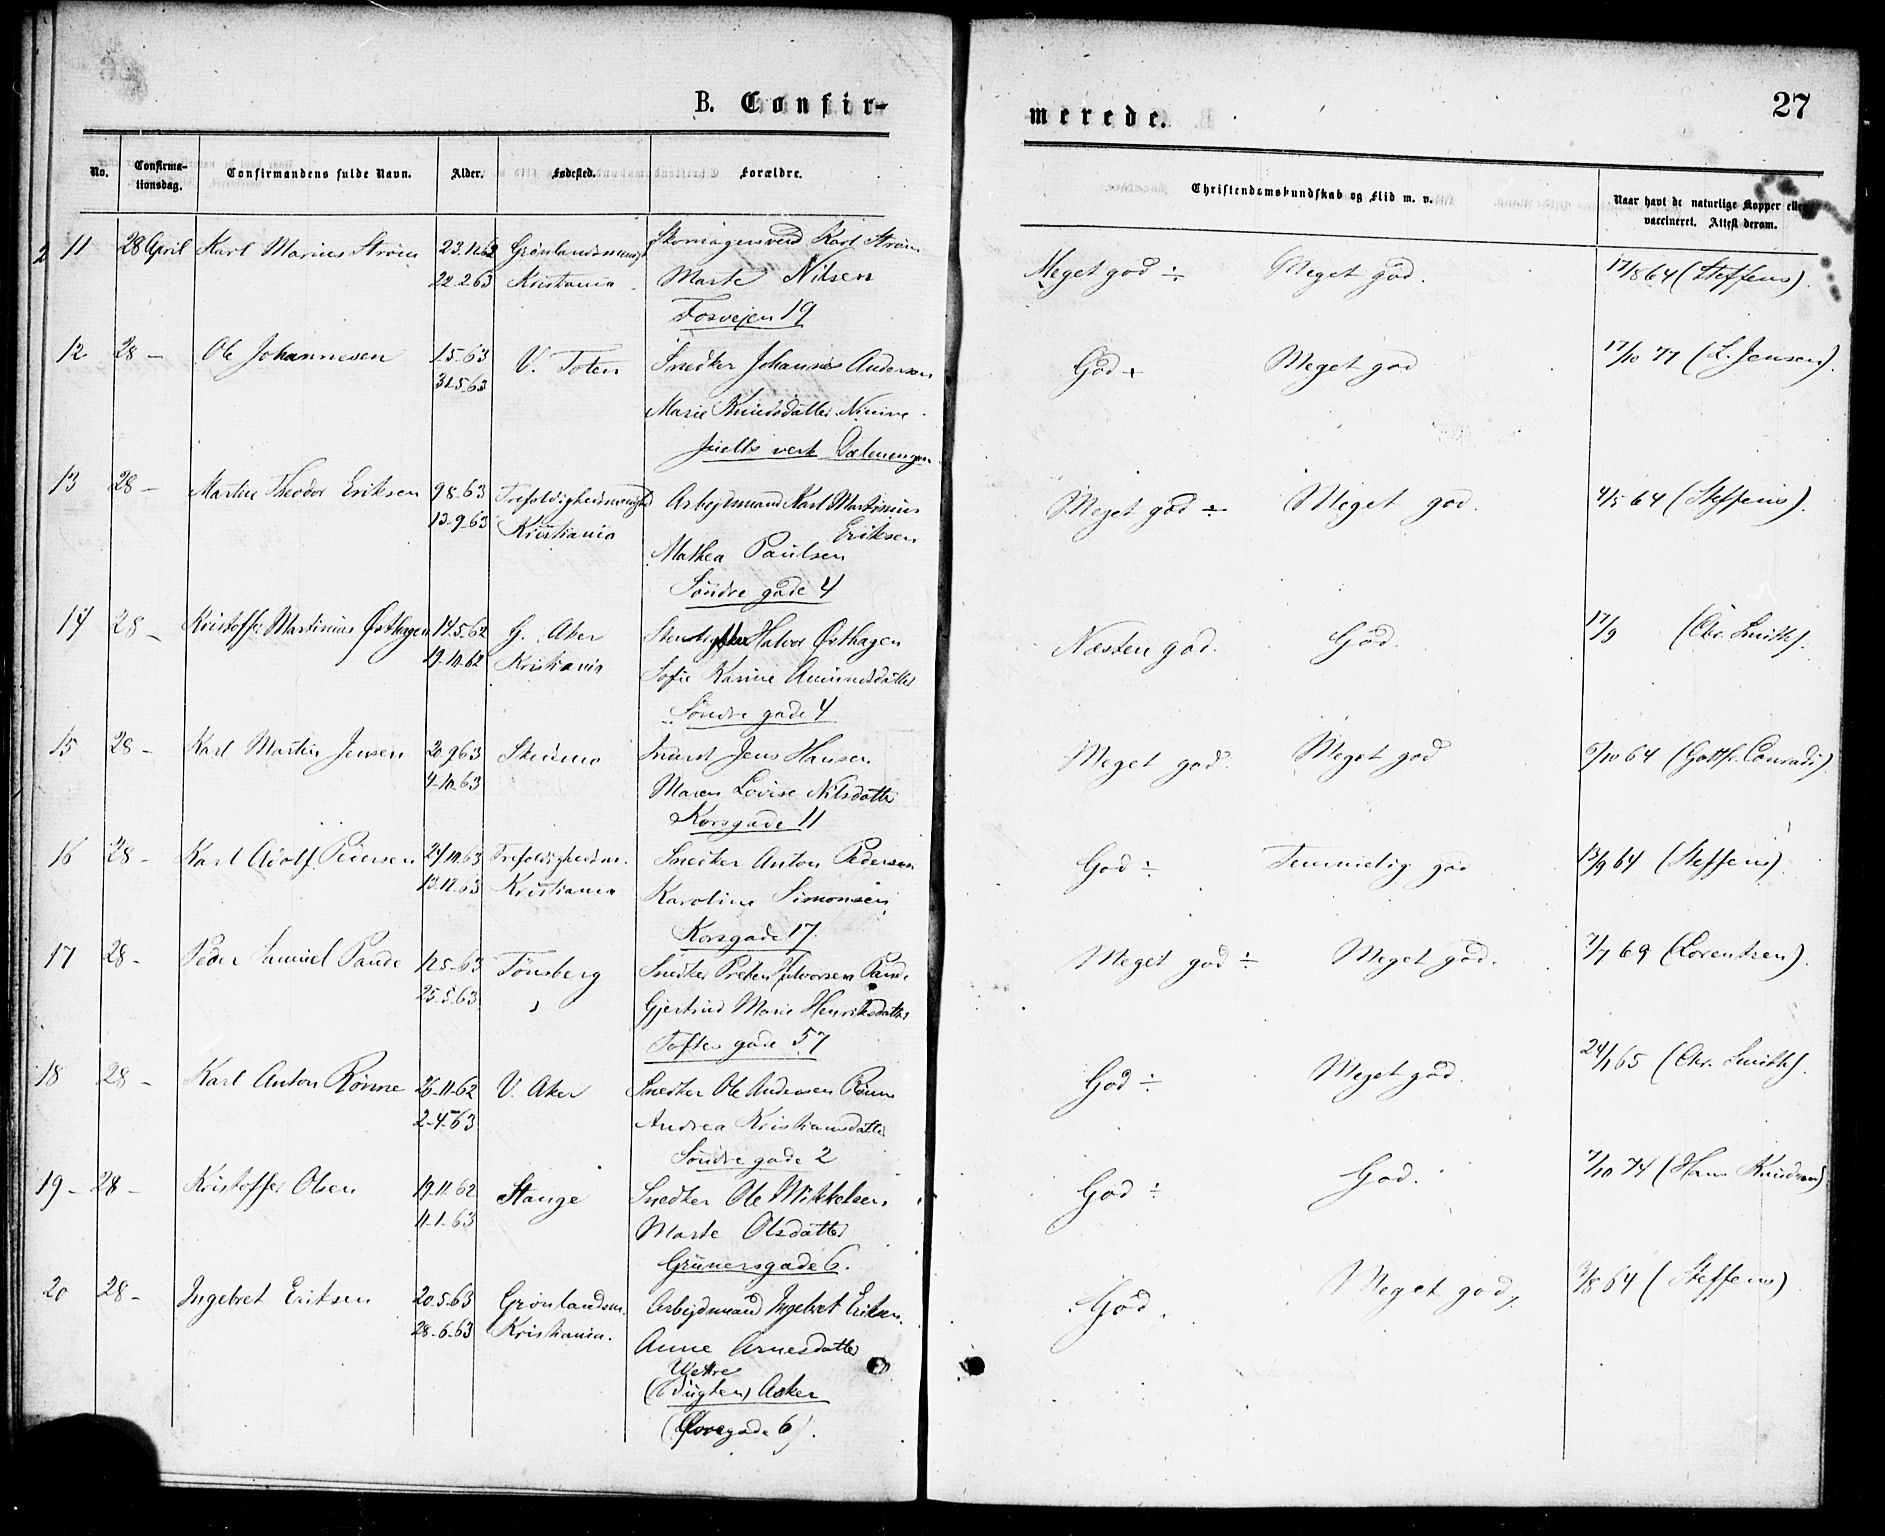 B. Confir-
merede.
27
No.
Confirma-
tionsdag.
Confirmandens fulde Navn.
Alder.
Fødested.
Forældre.
Christendomskundskab og Flid m. v.
Naar havt de naturlige Kopper eller
vaccineret. Attest derom.
2 11 28 April Karl Marius Strøm 23.11.62 Grønlandsmenigh
22-2 63 Kristiania
Skomagersvend Karl Strøm
Marte Nilsen
Fosvejen 19
Meget god ÷ Meget god. 17/8 64 (Steffens).
12 28 - Ole Johannesen 1.5-63 V. Toten
31.5.63
Snedker Johannes Andersen
Marie Knudsdatter
verk Dælenengen
God + Meget god 17/10 77 (L. Jensen).
13 28 - Martin Theodor Eriksen 9.8.63 Trefoldighedsmenighed
13-9-63 Kristiania
Arbejdsmand Karl Martinius
Eriksen
Mathea Paulsen
Søndre gade 4
Meget god ÷ Meget god. 4/5 64 (Steffens).
14 28 - Kristoffer Martinius Østhagen 14.5.62 G. Aker
19.10.62 Kristiania
Halvor Østhagen
Sofie Karine Amundsdatter
Søndre gade 4
Næsten god. God. 17/9 (Chr. Smith).
15 28 - Karl Martin Jensen 20.9 63 Skedsmo
4-10.63
Jens Hansen
Maren Lovise Nilsdatter
Korsgade 11
Meget god. Meget god 6/10 64 (Gottfr. Conradi).
16 28 - Karl Adolf Pedersen 24/10.63 Trefoldighedsm.
13.12.63 Kristiania
Snedker Anton Pedersen
Karoline Simonsen
Korsgade 17.
God ÷ Temmelig god 13/9 64 (Steffens).
17 28 - Peder Samuel Paude 12.5-63 Tønsberg
25.5.63
Snedker Preben Halvorsen Paude
Gjertrud Marie Henriksdatter
Toftes gade 57
Meget god ÷ Meget god. 7/7 69 (Lorentzen).
18 28 - Karl Anton Rønne 26-11-62 V. Aker
2-4.63
Snedker Ole Andersen Rønne
Andrea Kristiansdatter
Søndre gade 2
God ÷ Meget god. 24/1 65 (Chr. Smith).
19 - 28 - Kristoffer Olsen 19.11.62 Stange
11-1-63
Snedker Ole Mikkelsen
Marte Olsdatter
Grünersgade 6.
God ÷ God. 7/10 74 (Hans Knudsen)
20 28 - Ingebret Eriksen 20.5.63 Grønlandsm.
28-6-63 Kristiania.
Arbejdsmand Ingebret Eriksen.
Anne Arnesdatter
Asker
gade 6).
God. Meget god 3/8 64 (Steffens)